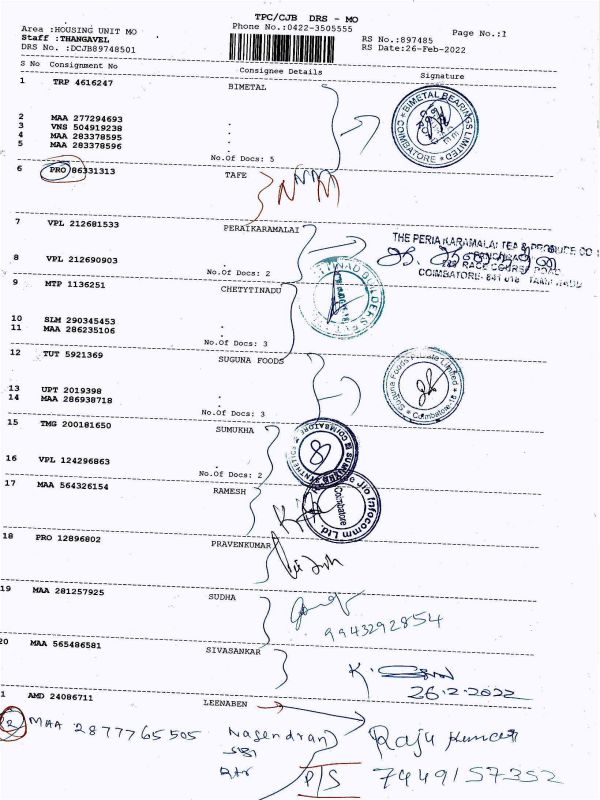 TPC/CJB DRS - MO
Area :HOUSING UNIT MO
Phone No.:0422-3505555
Page No.:1
Staff :THANGAVEL
RS No.:897485
DRS No. :DCJB89748501
RS Date:26-Feb-2022
S No Consignment No Consignee Details Signature
1 TRP 4616247 BIMETAL
BIMETAL BEARINGS LIMITED
COIMBATORE
2 MAA 277294693 .
3 VNS 504919238 .
4 MAA 283378595 .
5 MAA 283378596 .
No.Of Docs: 5
6 PRO 86331313 TAFE
7 VPL 212681533 PERAIKARAMALAI
THE PERIA KARAMALAI TEA & PRODUCE CO
8 VPL 212690903 .
RACE COURSE ROAD
COIMBATORE- 641 018 TAMIL NADU
No.Of Docs: 2
9 MTP 1136251 CHETYTINADU
10 SLM 290345453 .
11 MAA 286235106 .
No.Of Docs: 3
12 TUT 5921369 SUGUNA FOODS
Suguna Foods Private Limited
Coimbatore-18
13 UPT 2019398 .
14 MAA 286938718 .
No.Of Docs: 3
15 TMG 200181650 SUMUKHA
SUMUKHA SYNTHETICS
COIMBATORE
16 VPL 124296863 .
No.Of Docs: 2
17 MAA 564326154 RAMESH
Jio Infocomm Ltd.
Coimbatore
18 PRO 12896802 PRAVENKUMAR
19 MAA 281257925 SUDHA
9943292854
20 MAA 565486581 SIVASANKAR
K.
26.2.2022
1 AMD 24086711 LEENABEN
R MAA 2877765505 Nagendran Raju Kumar
SBI
P/S 7449157352